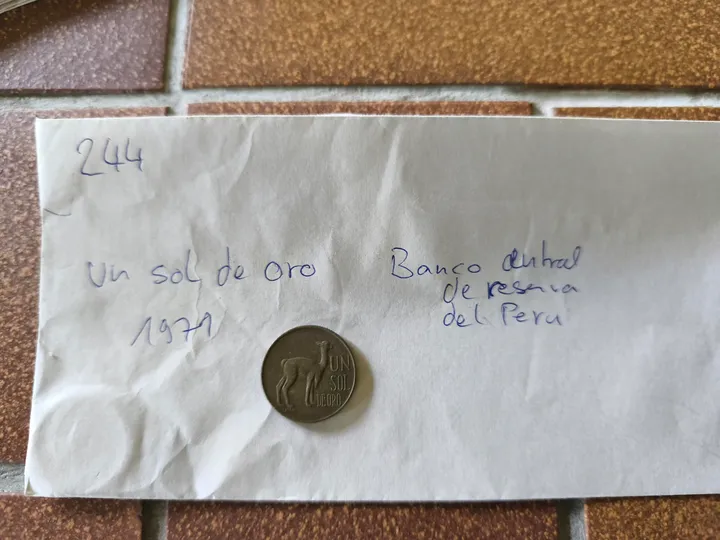 244
un sol de oro
1971
Banco central
de reserva
del Peru
UN
SOL
DE ORO